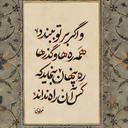 وگر بر تو ببندد
همه ره‌ها و گذرها
ره پنهان بنماید که
کس آن راه نداند